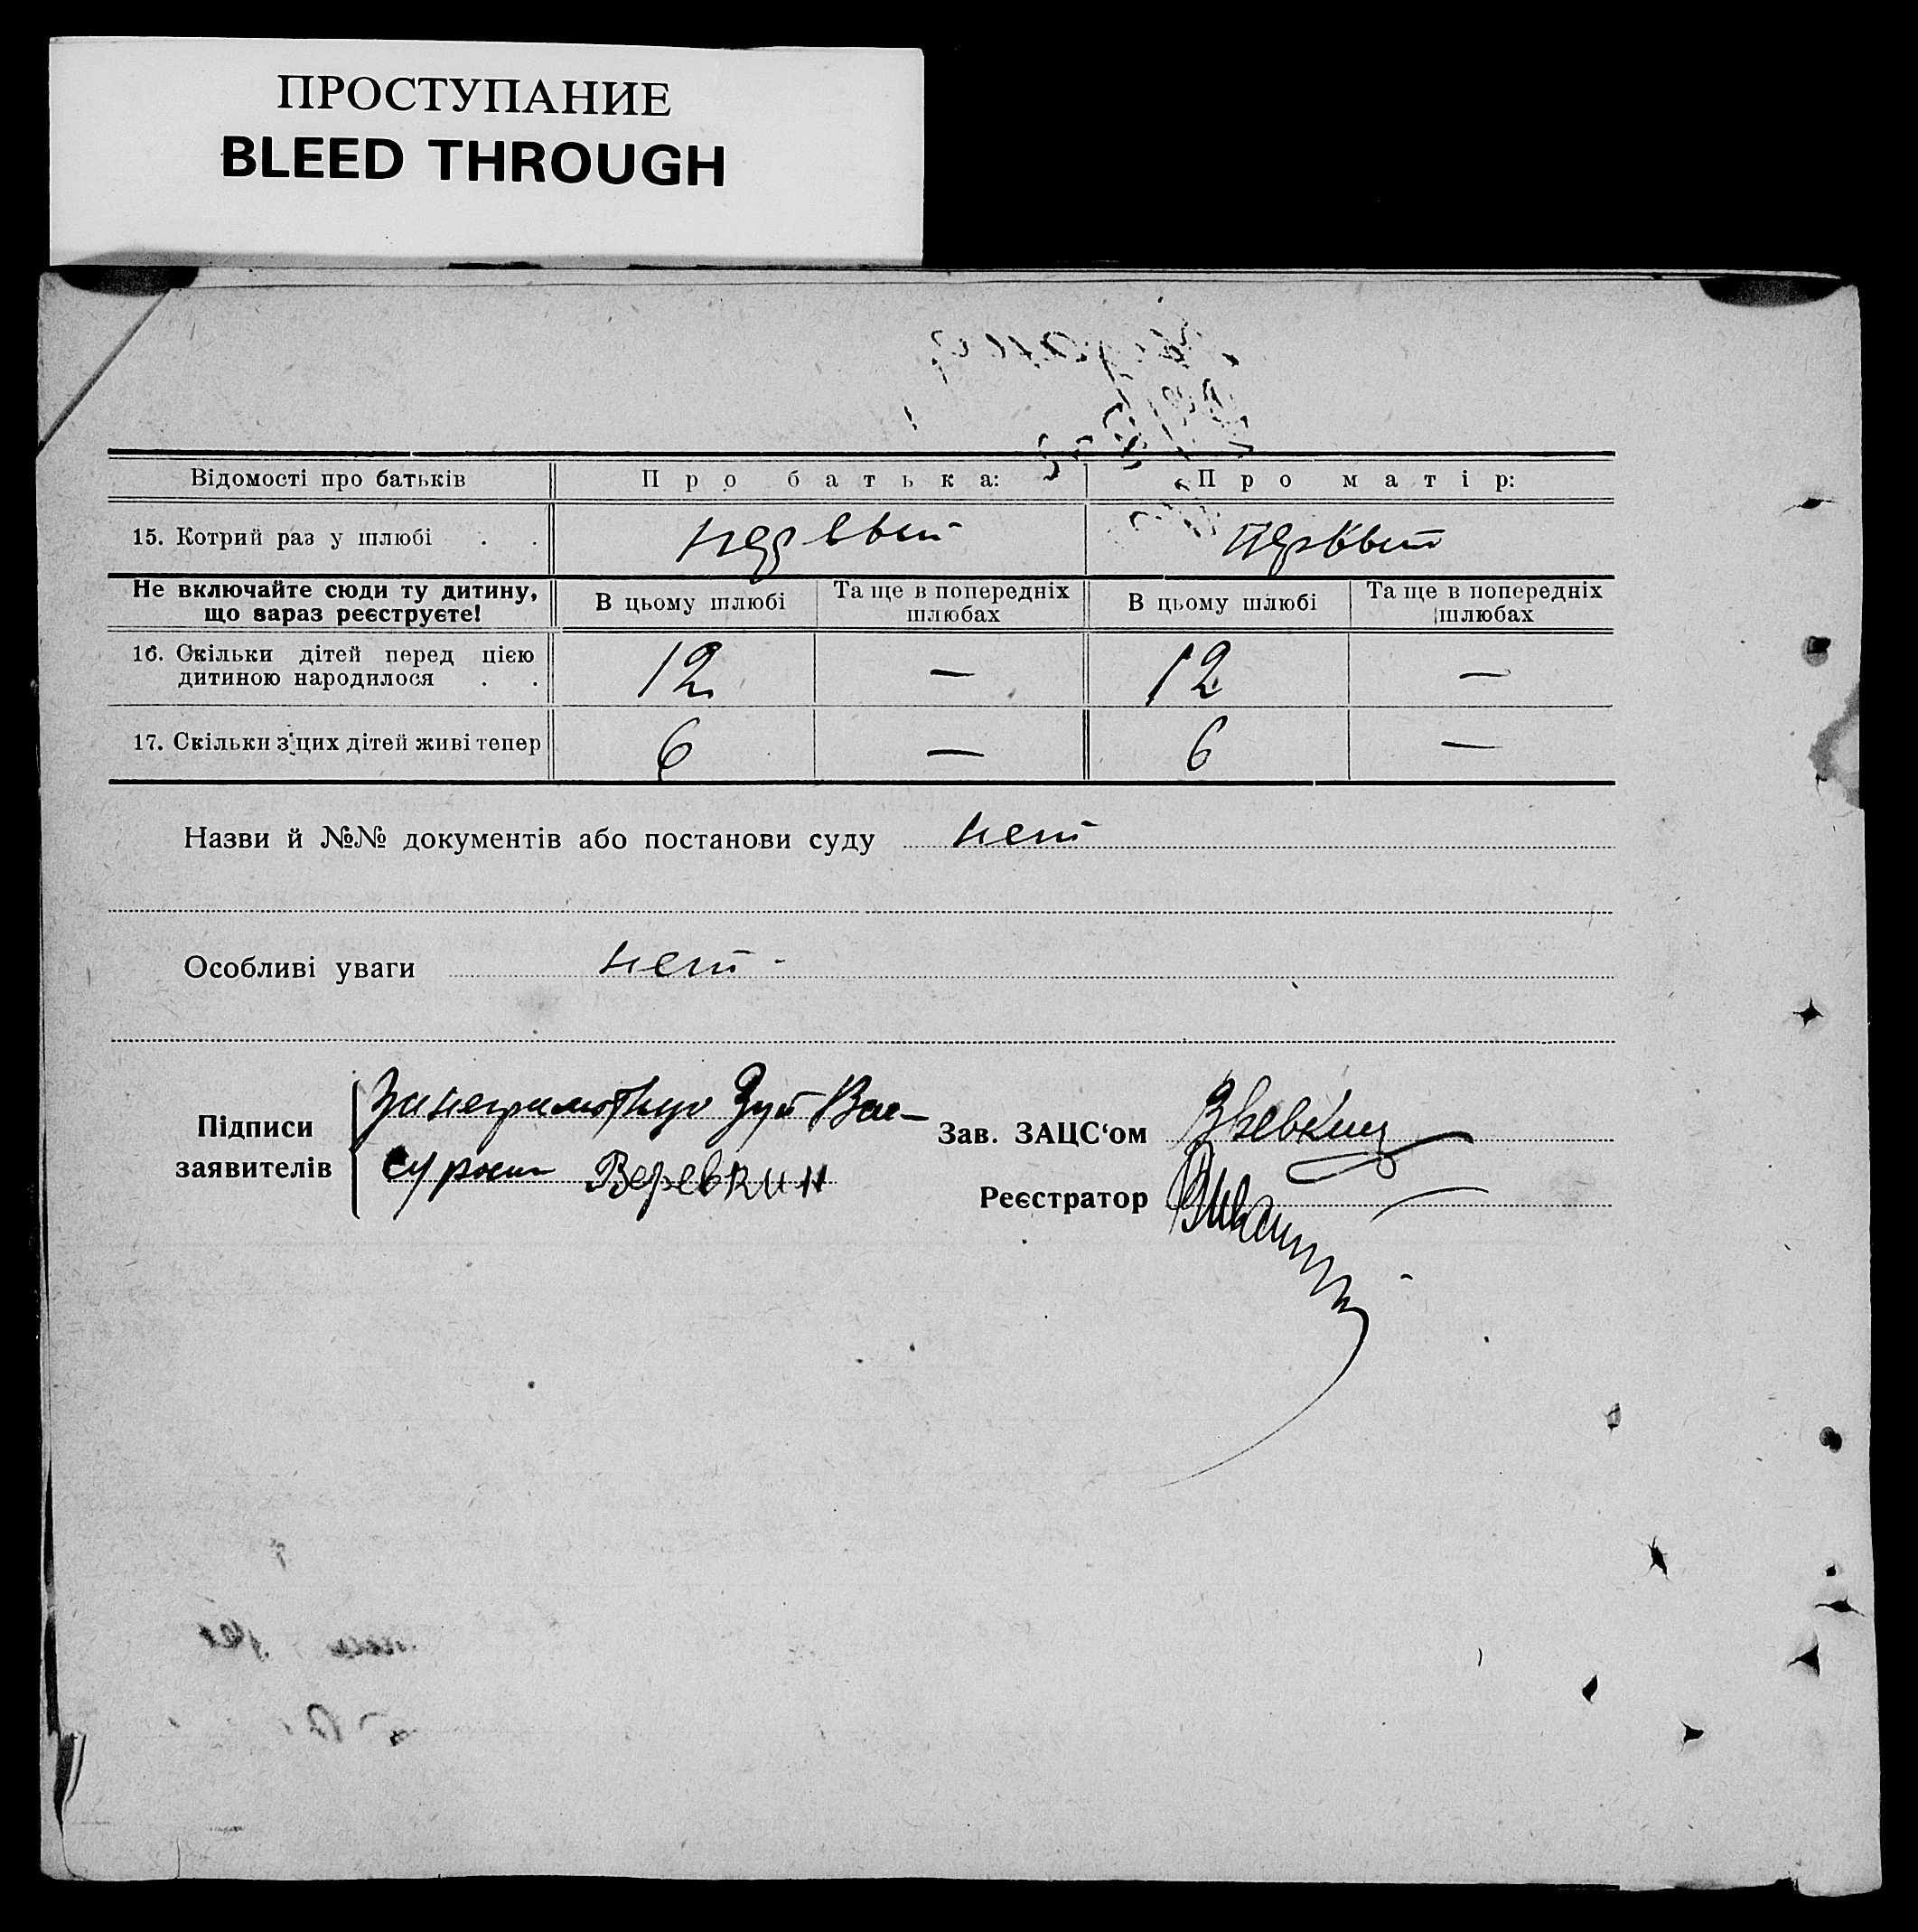 ПРОСТУПАНИЕ
BLEED THROUGH
Відомості про батьків Про батька: Про матір:
15. Котрий раз у шлюбі . . первый первый
Не включайте сюди ту дитину, що зараз реєструєте! В цьому шлюбі Та ще в попередніх шлюбах В цьому шлюбі Та ще в попередніх шлюбах
16. Скільки дітей перед цією дитиною народилося . . 12 — 12 —
17. Скільки з цих дітей живі тепер 6 — 6 —
Назви й №№ документів або постанови суду нет
Особливі уваги нет -
Підписи заявителів
За неграмотную Зуй
Веревкин
Зав. ЗАЦС‘ом
Реєстратор